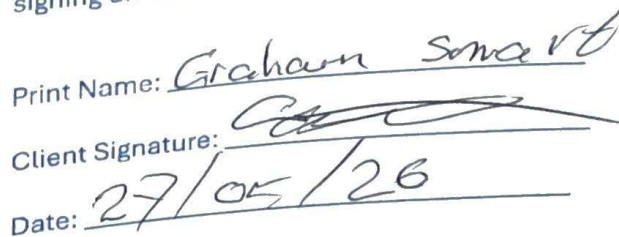 signing
Print Name: Graham Smart
Client Signature:
Date: 27/05/26